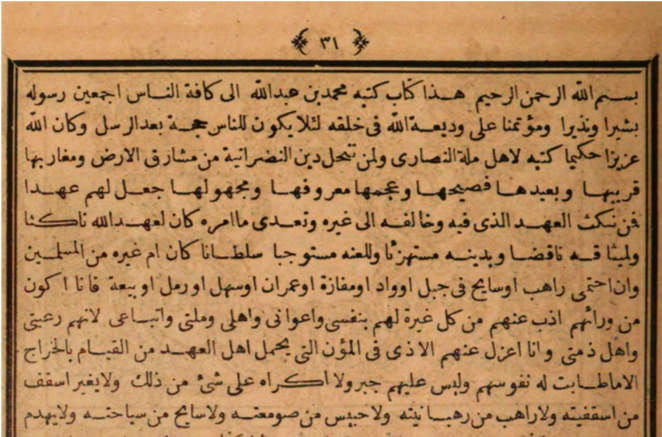 ٣١
بسم الله الرحمن الرحيم هذا كتاب كتبه محمد بن عبدالله الى كافة الناس اجمعين رسوله
بشيرا ونذيرا ومؤتمنا على وديعة الله فى خلقه لئلا يكون للناس حجة بعد الرسل وكان الله
عزيزا حكيما كتبه لاهل ملة النصارى ولمن تنحل دين النصرانية من مشارق الارض ومغاربها
قريبها وبعيدها فصيحها وعجمها معروفها ومجهولها جعل لهم عهدا
فمن نكث العهد الذى فيه وخالفه الى غيره وتعدى ما امره كان لعهد الله ناكثا
ولميثاقه ناقضا وبدينه مستهزئا وللعنه مستوجبا سلطانا كان ام غيره من المسلمين
وان احتمى راهب اوسايح فى جبل اوواد اومفازة اوعمران اوسهل اورمل اوبيعة فانا اكون
من ورائهم اذب عنهم من كل غيرة لهم بنفسى واعوانى واهلى وملتى واتباعى لانهم رعيتى
واهل ذمتى وانا اعزل عنهم الاذى فى المؤن التى يحمل اهل العهد من القيام بالخراج
الا ماطابت له نفوسهم وليس عليهم جبر ولا اكراه على شئ من ذلك ولايغير اسقف
من اسقفيته ولاراهب من رهبانيته ولاحبيس من صومعته ولاسايح من سياحته ولايهدم